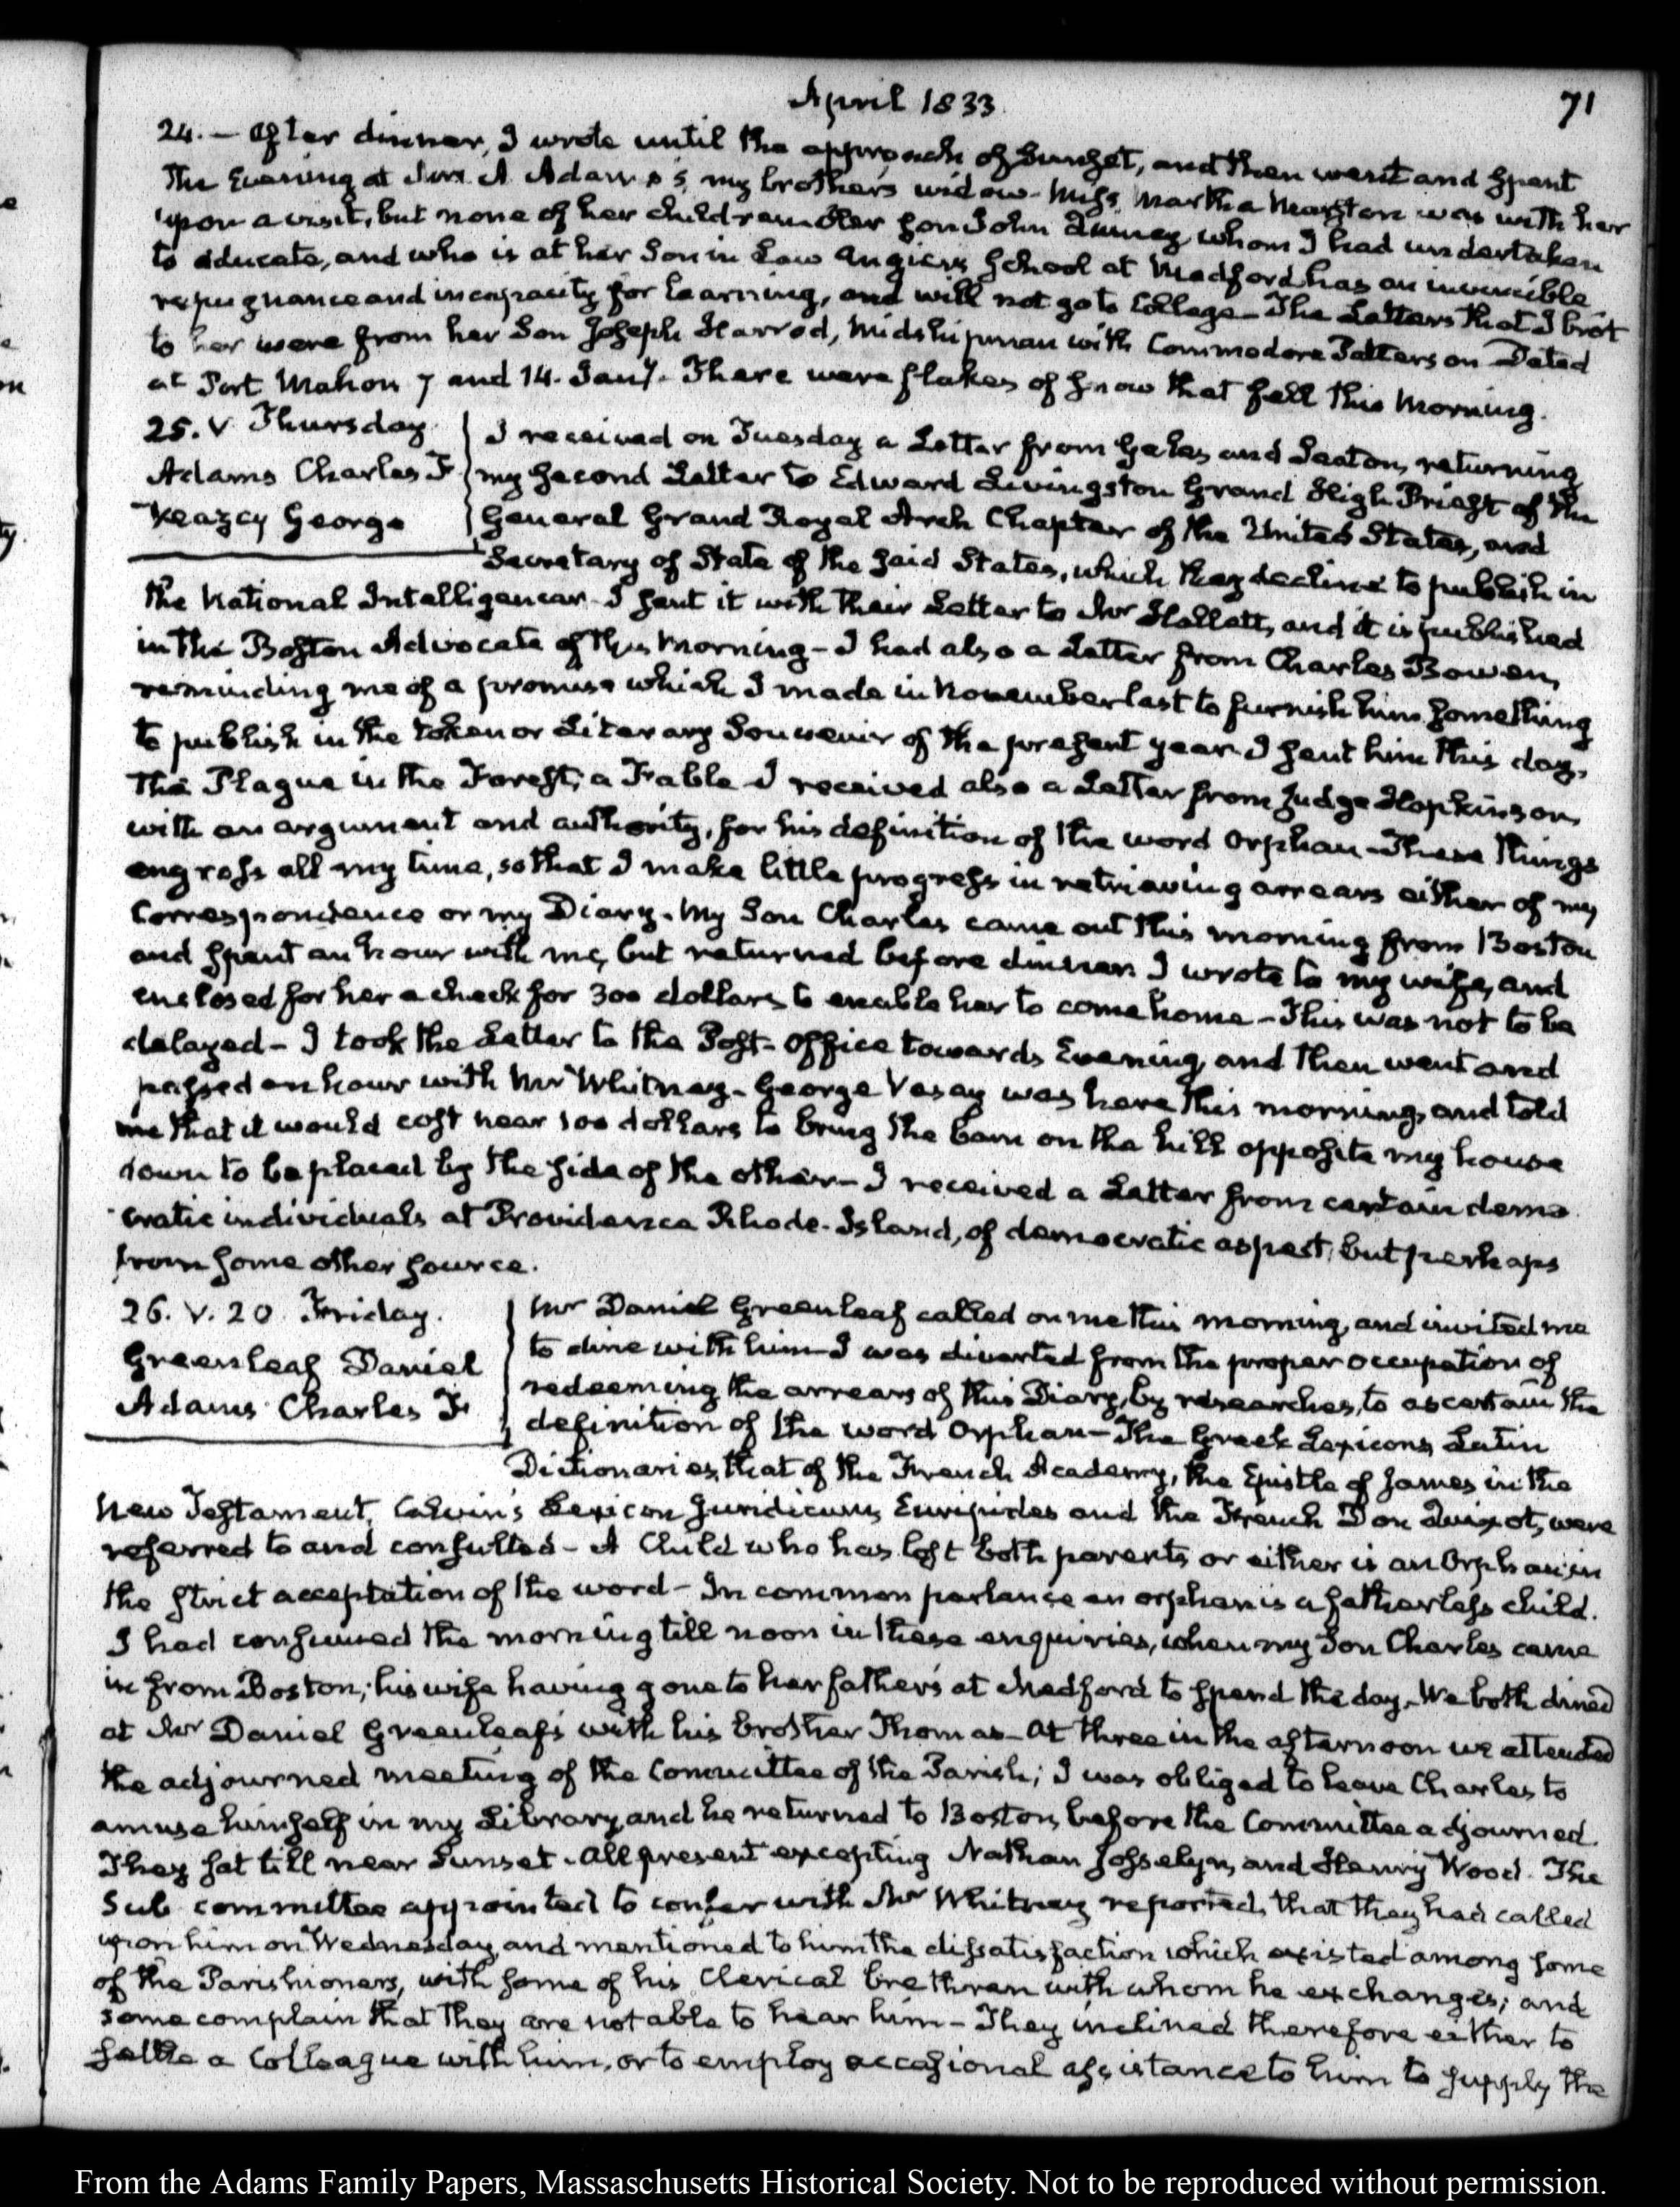 April 1833.
71
24. — After dinner, I wrote until the approach of Sunset, and then went and spent
the Evening at Mrs. A Adams's, my brother's widow. Miss Martha Marston was with her
upon a visit, but none of her children. Her son John Quincy, whom I had undertaken
to educate, and who is at her Son in Law Angier's School at Medford has an invincible
repugnance and incapacity for learning, and will not go to College — The Letters that I brot
to her were from her Son Joseph Harrod, Midshipman with Commodore Patterson Dated
at Port Mahon 7 and 14. Jany. There were flakes of snow that fell this Morning.
25. V Thursday.
Adams Charles F
Veazey George
I received on Tuesday a Letter from Gales and Seaton, returning
my second Letter to Edward Livingston Grand High Priest of the
General Grand Royal Arch Chapter of the United States, and
Secretary of State of the said States, which they decline to publish in
the National Intelligencer. I sent it with their Letter to Mr Hallett, and it is published
in the Boston Advocate of this Morning — I had also a Letter from Charles Bowen,
reminding me of a promise which I made in November last to furnish him something
to publish in the token or Literary Souvenir of the present year. I sent him this day,
The Plague in the Forest, a Fable. I received also a Letter from Judge Hopkinson,
with an argument and authority, for his definition of the word Orphan — These things
engross all my time, so that I make little progress in retrieving arrears either of my
Correspondence or my Diary. My Son Charles came out this morning from Boston
and spent an hour with me, but returned before dinner. I wrote to my wife, and
enclosed for her a check for 300 dollars to enable her to come home — This was not to be
delayed — I took the Letter to the Post-Office towards Evening, and then went and
passed an hour with Mr Whitney. George Vesey was here this morning, and told
me that it would cost near 100 dollars to bring the barn on the hill opposite my house
down to be placed by the side of the other — I received a Letter from certain demo
cratic individuals at Providence Rhode-Island, of democratic aspect, but perhaps
from some other source.
26. V. 20. Friday.
Greenleaf Daniel
Adams Charles F.
Mr Daniel Greenleaf called on me this morning, and invited me
to dine with him — I was diverted from the proper occupation of
redeeming the arrears of this Diary, by researches, to ascertain the
definition of the word Orphan — The Greek Lexicons, Latin
Dictionaries, that of the French Academy, the Epistle of James in the
New Testament, Calvin's Lexicon Juridicum, Euripides and the French Don Quixot, were
referred to and consulted — A Child who has lost both parents or either is an Orphan in
the strict acceptation of the word — In common parlance an orphan is a fatherless child.
I had consumed the morning till noon in these enquiries, when my Son Charles came
in from Boston; his wife having gone to her father's at Medford to spend the day. We both dined
at Mr Daniel Greenleaf's with his brother Thomas — At three in the afternoon we attended
the adjourned meeting of the Committee of the Parish; I was obliged to leave Charles to
amuse himself in my Library, and he returned to Boston, before the Committee adjourned.
They sat till near Sunset. All present excepting Nathan Josselyn, and Henry Wood. The
Sub committee appointed to confer with Mr Whitney reported, that they had called
upon him on Wednesday, and mentioned to him the dissatisfaction which existed among some
of the Parishioners, with some of his Clerical brethren with whom he exchanges; and
some complain that they are not able to hear him — They inclined therefore either to
settle a Colleague with him, or to employ occasional assistance to him to supply the
From the Adams Family Papers, Massachusetts Historical Society. Not to be reproduced without permission.